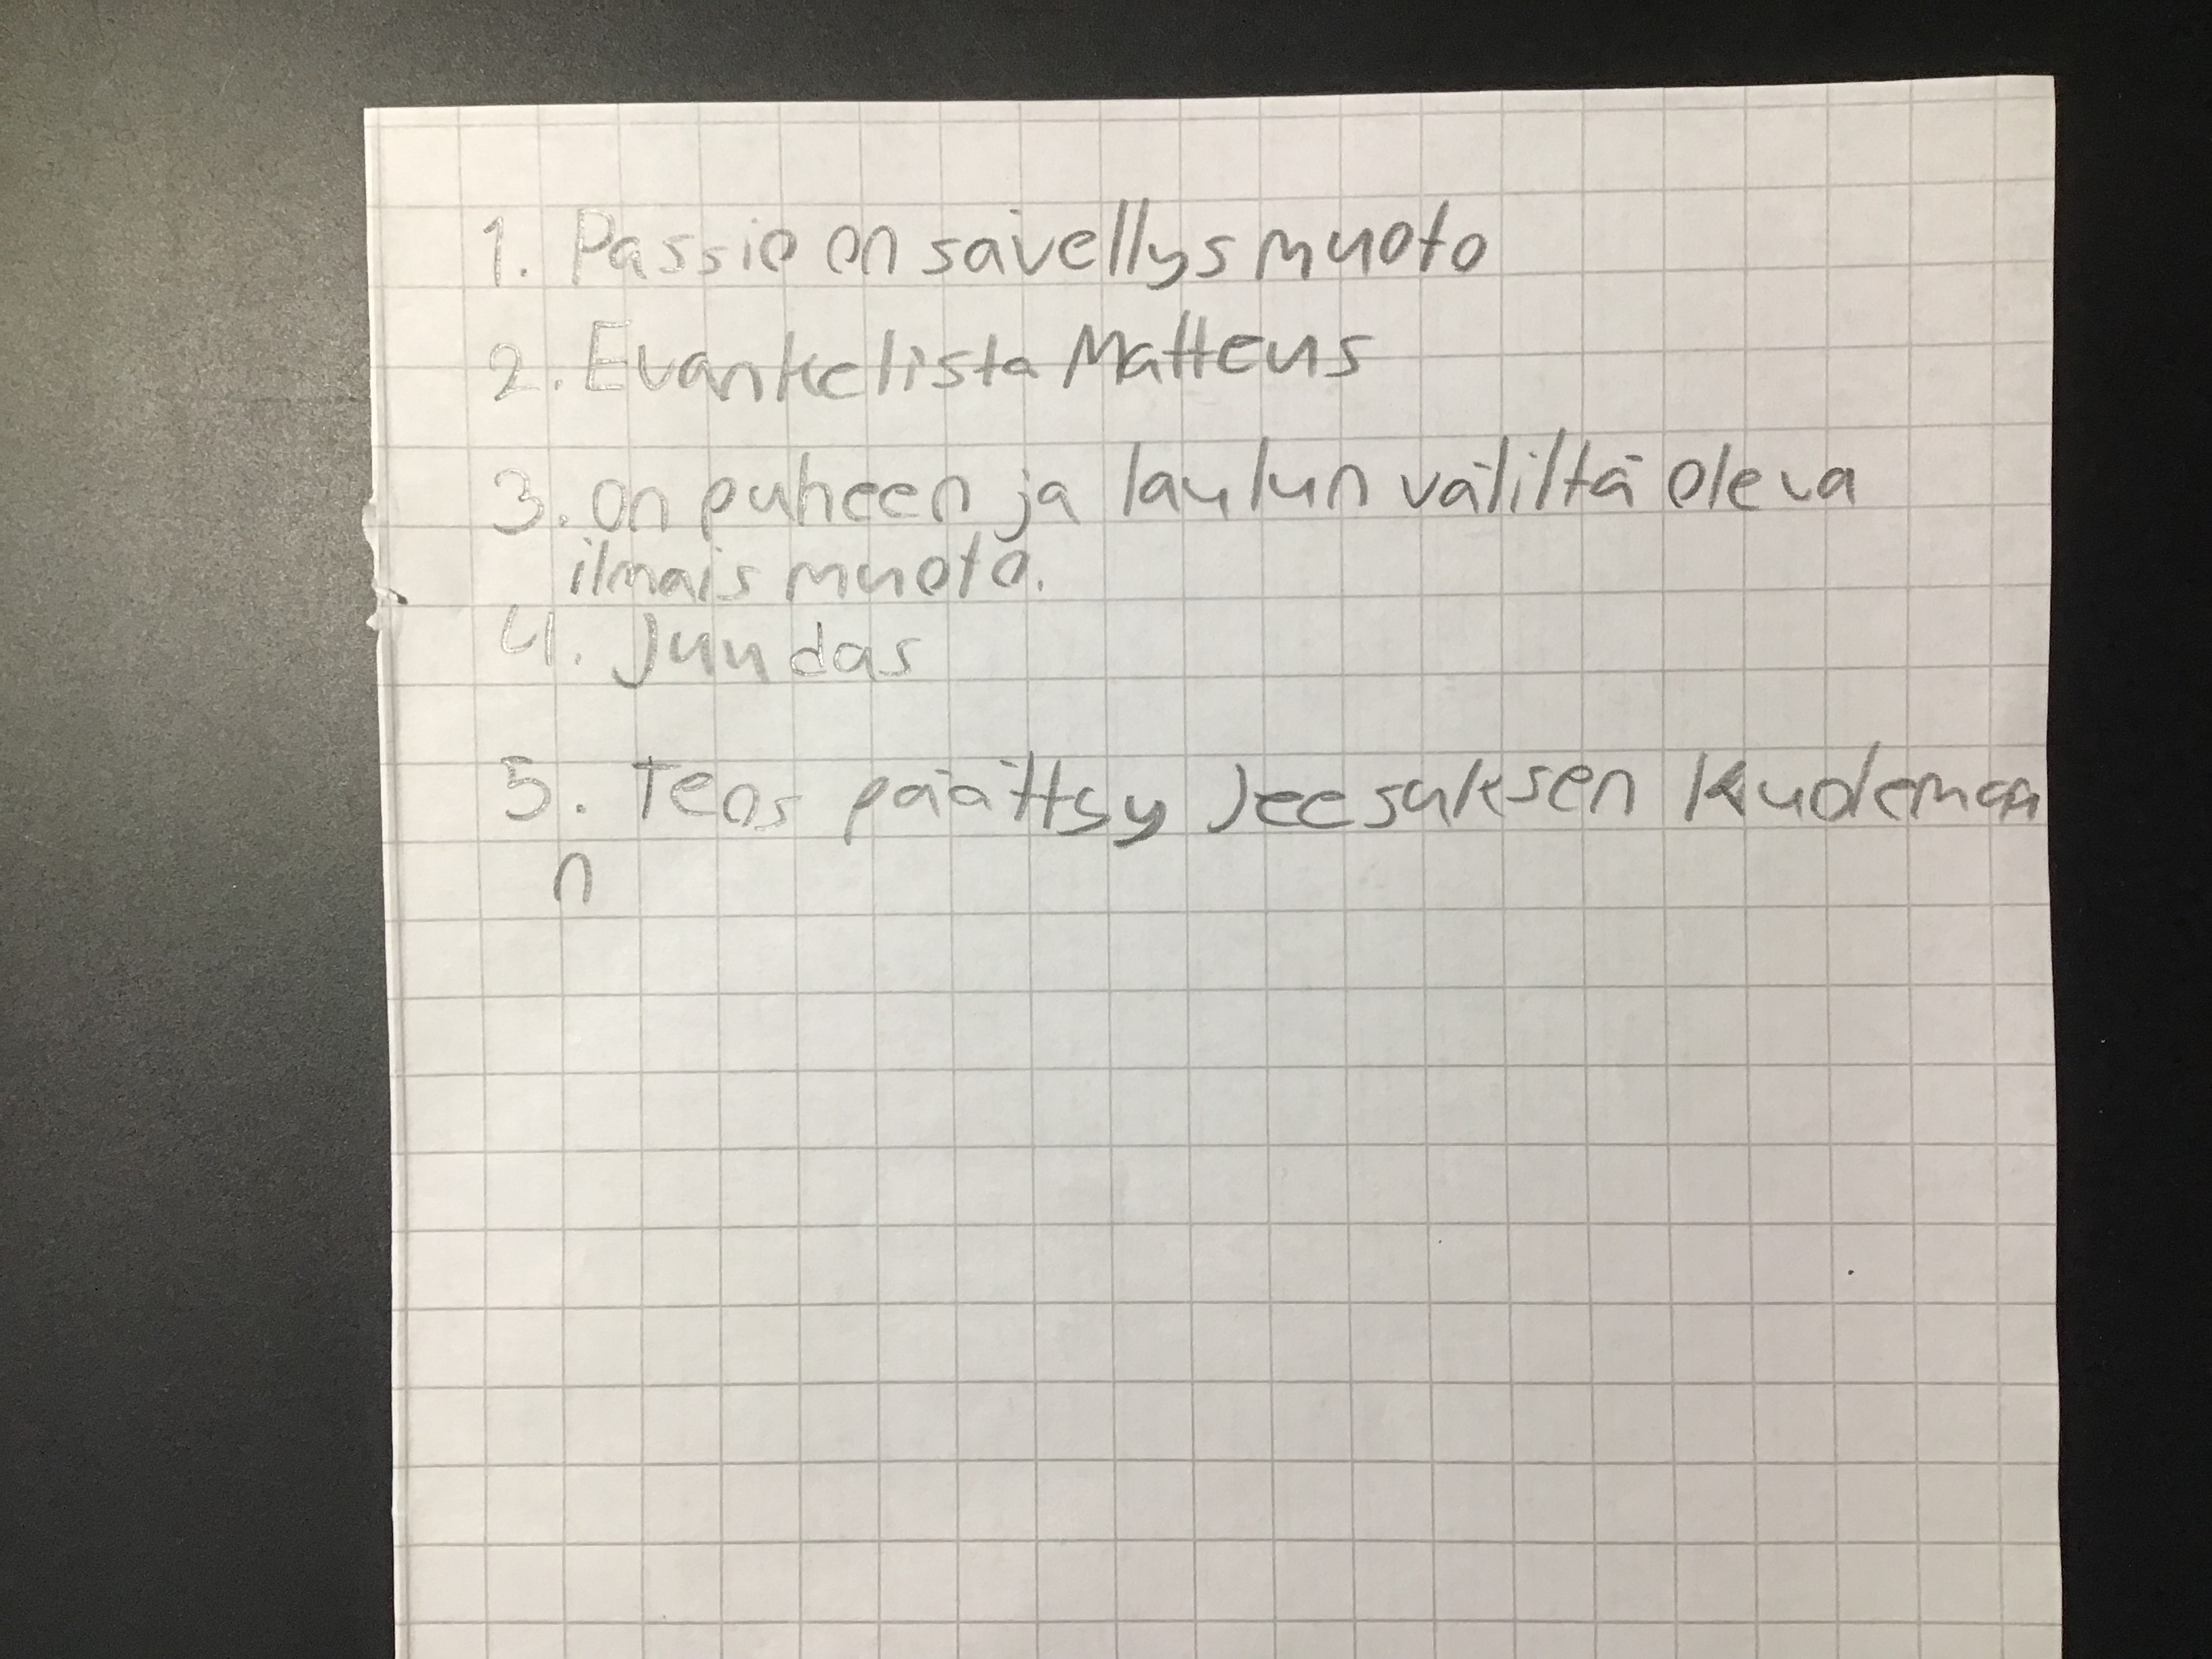 1. Passio on sävellys muoto
2. Evankelista Matteus
3. on puheen ja laulun väliltä oleva
ilmais muoto.
4. Juudas
5. Teos päättyy Jeesuksen Kudeman
n